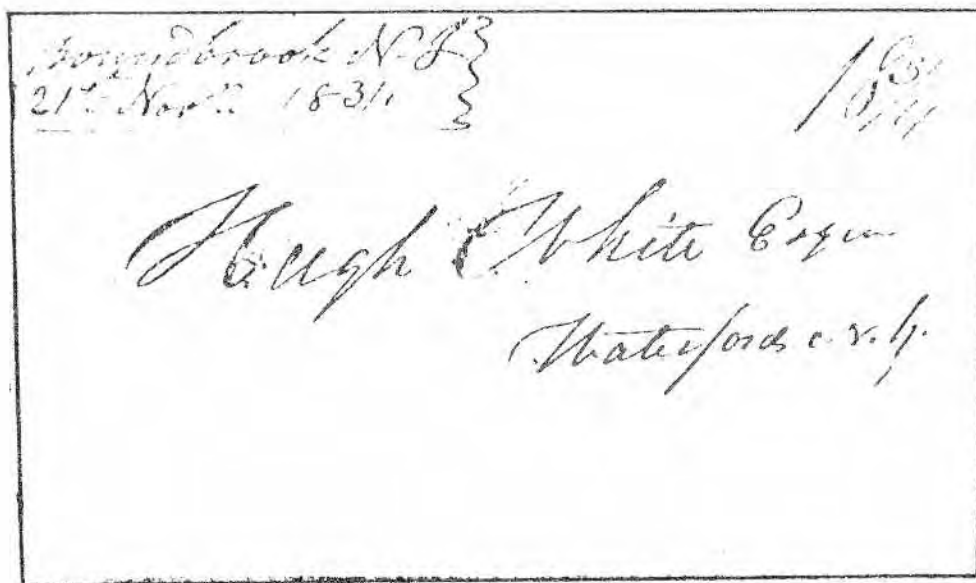 Boundbrook N.J.
21st Novr. 1831.
Hugh White Esqr
Waterford